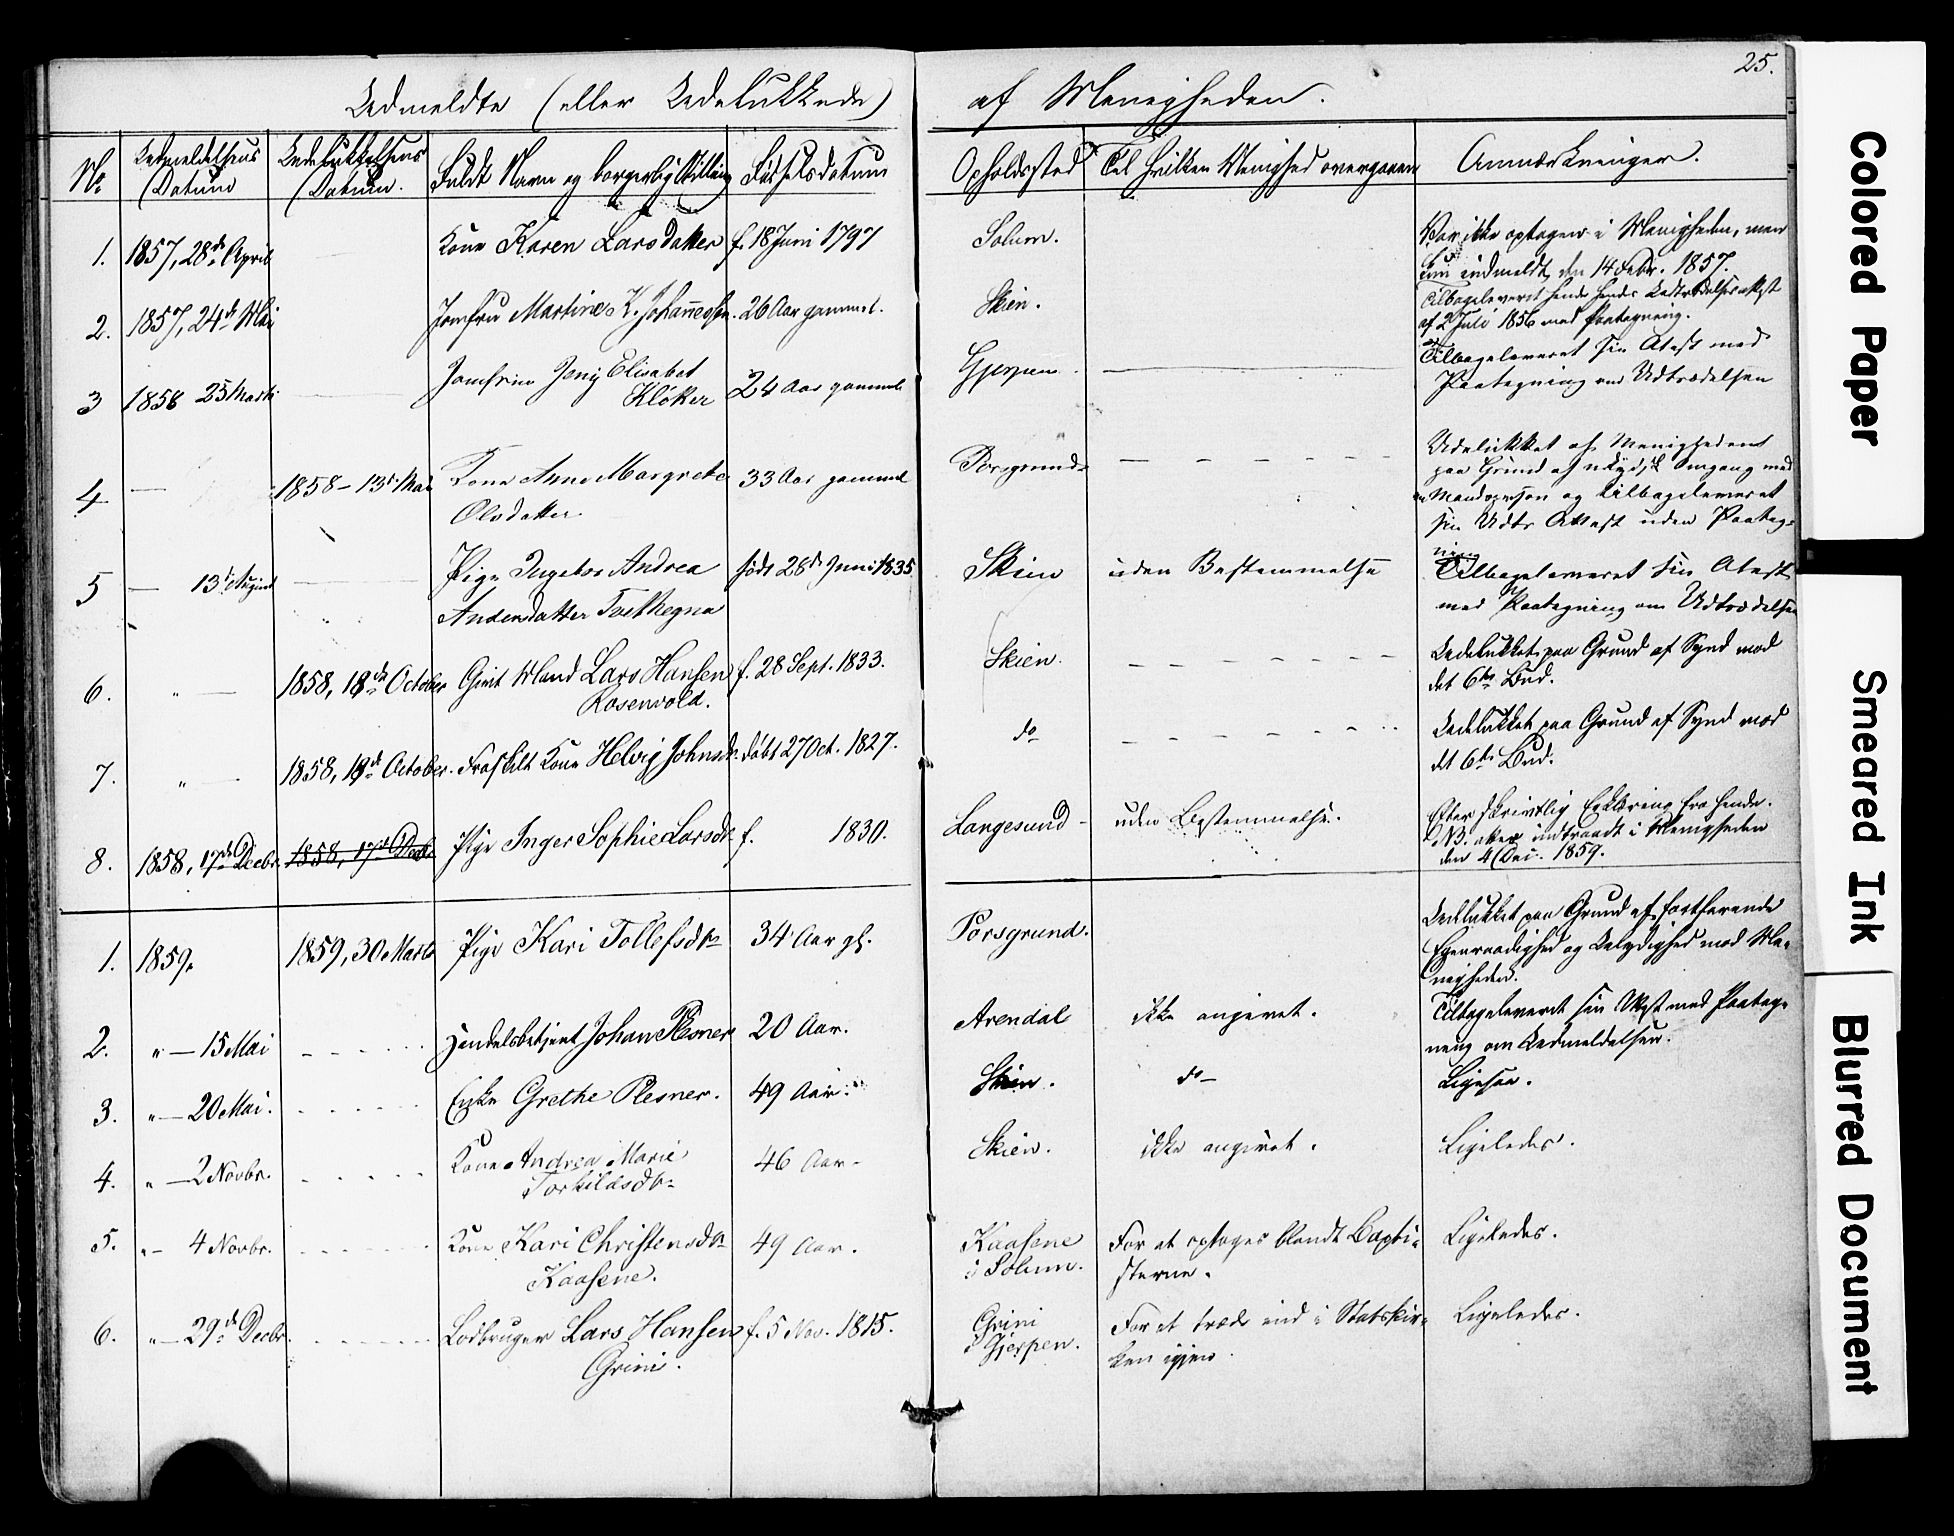 25.
Udmeldte (eller Udelukkede) af Menigheden.
No Udmeldelsens Datum Udelukkelsens Datum. Fuldt Navn og borgerlig Stilling Fødselsdatum Opholdssted Til hvilken Menighed overgaaen Anmærkninger.
1. 1857, 28de April Kone Karen Larsdatter f. 18 Juni 1797 Solum. Var ikke optagen i Menigheden, men
kun indmeldt den 14 Febr. 1857.
2. 1857, 24de Mai Jomfru Martine K. Johannessen. 26 Aar gammel. Skien. Tilbageleveret hende hendes Udtrædelsesattest
af 2 Juli 1856 med Paategning.
3 1858 25 Marts Jomfrue Jeny Elisabet
Kløker 24 Aar gammel Gjerpen Tilbageleveret sin Atest med
Paategning om Udtrædelsen
4 1858 - 13de Mai Kone Anne Margrete
Olsdatter 33 Aar gammel Porsgrund Udelukket af Menigheden
paa Grund af Omgang med
en Mandsperson og tilbageleveret
sin Udtr Attest uden Paateg-
ning
5 — 13de August Pige Ingebor Andrea
Andersdatter født 28de Juni 1835 Skien uden Bestemmelse Tilbageleveret sin Atest
med Paategning om Udtrædelsen
6. " — 1858, 18de October Gift Mand Lars Hansen
Rosenvold. f. 28 Sept. 1833. Skien. Udelukket paa Grund af Synd mod
det 6te Bud.
7. " — 1858, 19de October. Fraskilt Kone Helvig Johnsdr. døbt 27 Oct. 1827. do Udelukket paa Grund af Synd mod
det 6te Bud.
8. 1858, 17de Decbr. 1858, 17de Decbr. Pige Inger Sophie Larsdtr f. 1830. Langesund - uden Bestemmelse. Efter skriftlig Erklæring fra hende.
NB. atter indtraadt i Menigheden
den 4 1859.
1. 1859. 1859, 30 Marts Pige Kari Tollefsdtr 34 Aar gl. Porsgrund. Udelukket paa Grund af fortfarende
Egenraadighed og Ulydighed mod Me-
nigheden.
2. " — 15 Mai Handelsbetjent Johan Plesner 20 Aar. Arendal ikke angivet. Tilbageleveret sin Attest med Paateg-
ning om Udmeldelsen.
3. " — 20 Mai. Enke Grethe Plesner. 49 Aar. Skien. do — Ligesaa.
4. " — 2 Novbr. Kone Andrea Marie
Torkildsdtr 46 Aar - Skien. ikke angivet. Ligeledes.
5. " — 4 Novbr. Kone Kari Christensdtr
Kaasene. 49 Aar. Kaasene
i Solum. For at optages blandt Bapti-
sterne. Ligeledes.
6. " — 29de Decbr. Lodbruger Lars Hansen
Grini. f. 5 Nov. 1815. Grini
i Gjerpen. For at træde ind i Statskir-
ken igjen. Ligeledes.
Colored Paper
Smeared Ink
Blurred Document